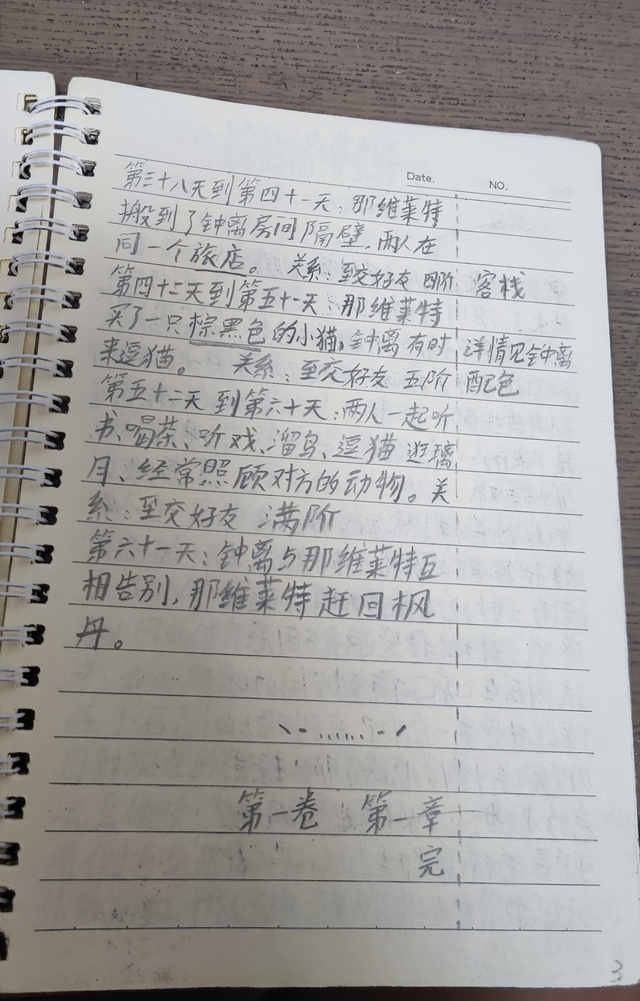 Date.
NO.
第三十八天到第四十一天:那维莱特
搬到了钟离房间隔壁,两人在
同一个旅店。 关系:至交好友 四阶 客栈
第四十二天到第五十一天:那维莱特
买了一只棕黑色的小猫,钟离有时 详情见钟离
来逗猫。 关系:至交好友 五阶 配色
第五十二天到第六十天:两人一起听
书、喝茶、听戏、溜鸟、逗猫 逛璃
月、经常照顾对方的动物。关
系:至交好友 满阶
第六十一天:钟离与那维莱特互
相告别,那维莱特赶回枫
丹。
第一卷 第一章
完
3